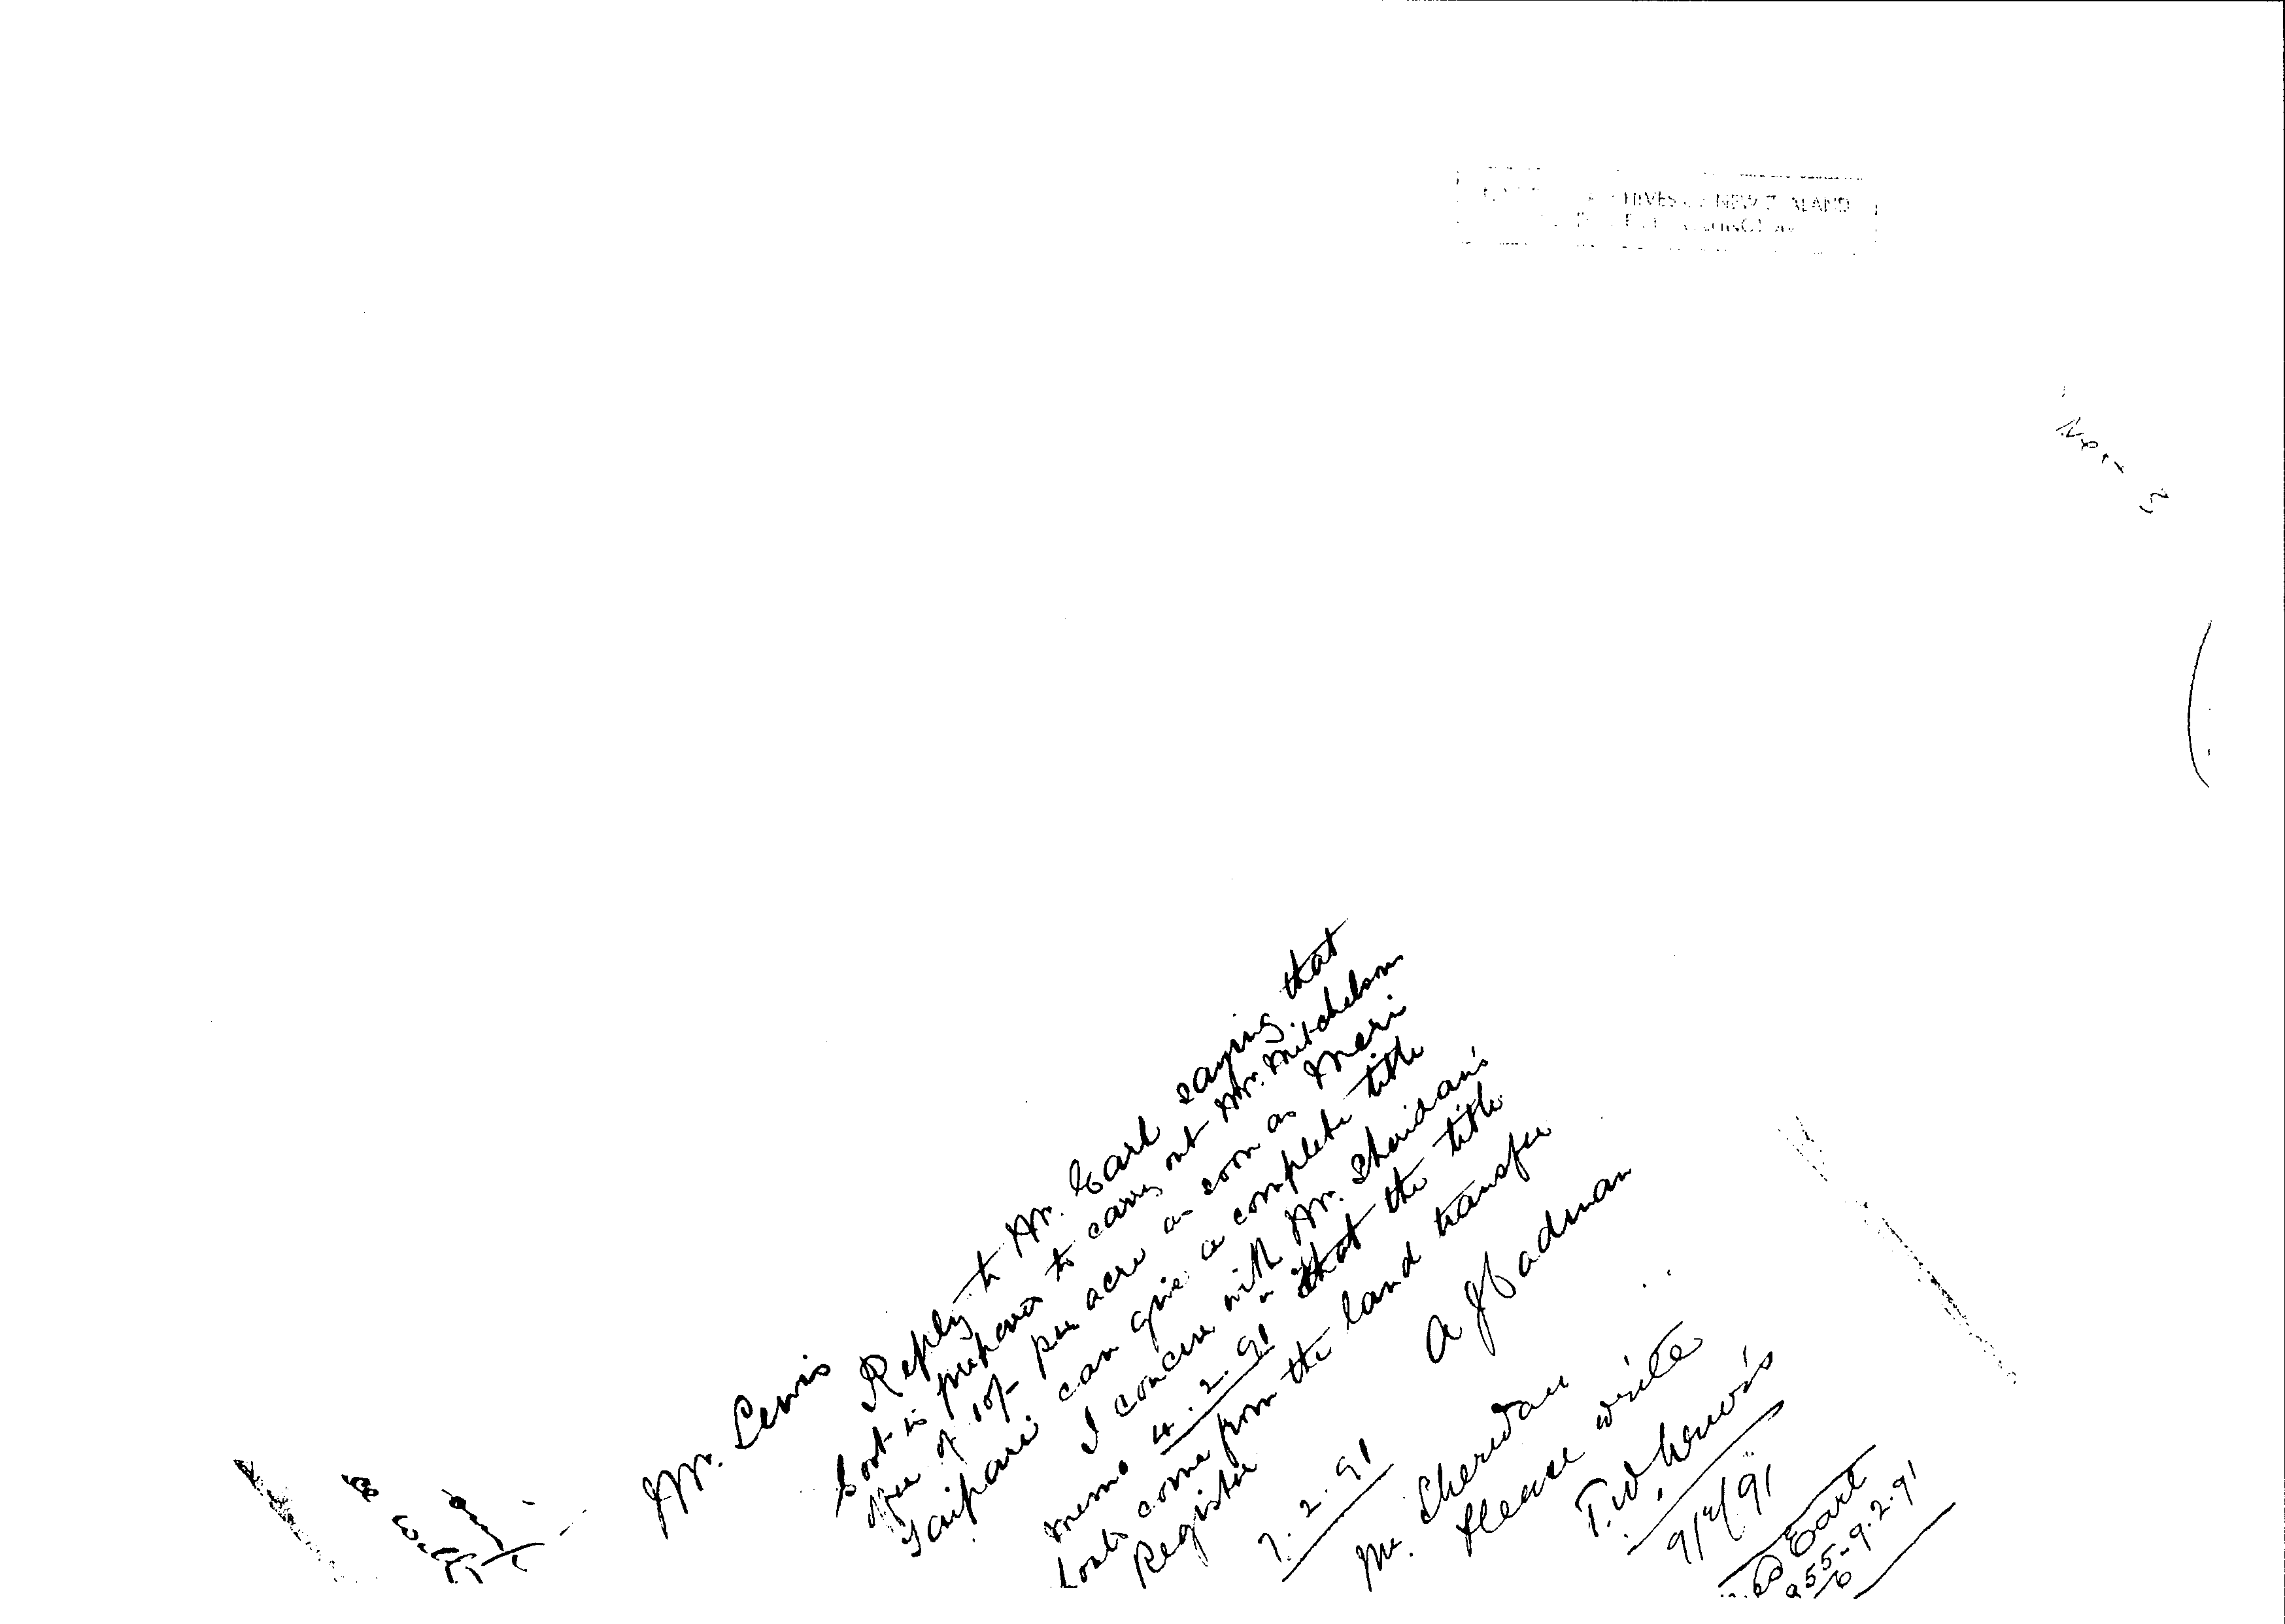 ARCHIVES NEW ZEALAND
Next 3
Mr. Lewis
Reply to Mr. Earl saying that
Govt is prepared to carry out Mr. Mitchelson
offer of 10/- per acre as soon as Meri
Taipari can give a complete title
I concur with Mr. Sheridan's
memo 4.2.91 that the title
must come from the land transfer
Register
A J Cadman
7.2.91
Mr. Sheridan
Please write
T.W. Lewis
9/2/91
Earl
55 - 9.2.91